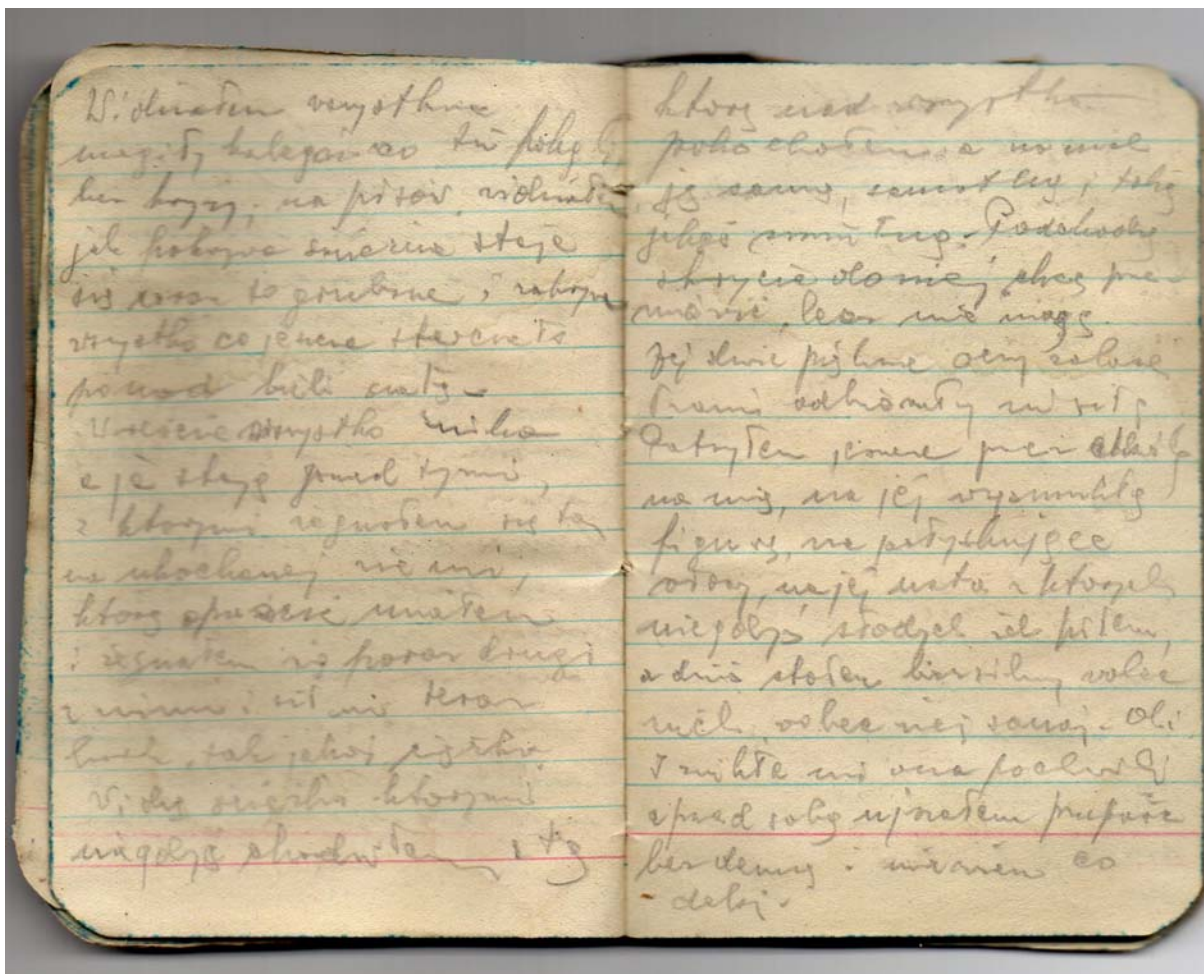 Widziałem wszystkie
mogiły kolegów co tu polegli
bez krzyży, na pisów, widziałem
jak pokrywa śnieżna staje
się coraz to grubsze i zakrywa
wszystko co jeszcze sterczało
ponad bieli
Wreszcie wszystko znika
a ja stoję przed tymi,
z którymi żegnałem się tam
na ukochanej ziemi,
którą opuścić miałem
i żegnałem się poraz drugi
z nimi i sił mi teraz
brak, tak jakoś ciężko.
Widzę ścieżki któremi
niegdyś chodziłem, i tą
którą nad wszystko
pokochałem, a
ją samą, samotną i taką
jakąś smutną. Podchodzę
skrycie do niej chcę prze-
mówić, lecz nie mogę.
Jej dwie piękne oczy zalane
łzami odbierały mi siłę
Patrzyłem jeszcze przez chwilę
na nią, na jej wysmukłą
figurę, na połyskujące
włosy, na jej usta z których
niegdyś słodycz piłem,
a dziś stałem bezsilny wobec
nich, wobec niej samej. Ale
znikła mi ona po chwili
a przed sobą ujrzałem przepaść
bez denną i nie wiem co
dalej.